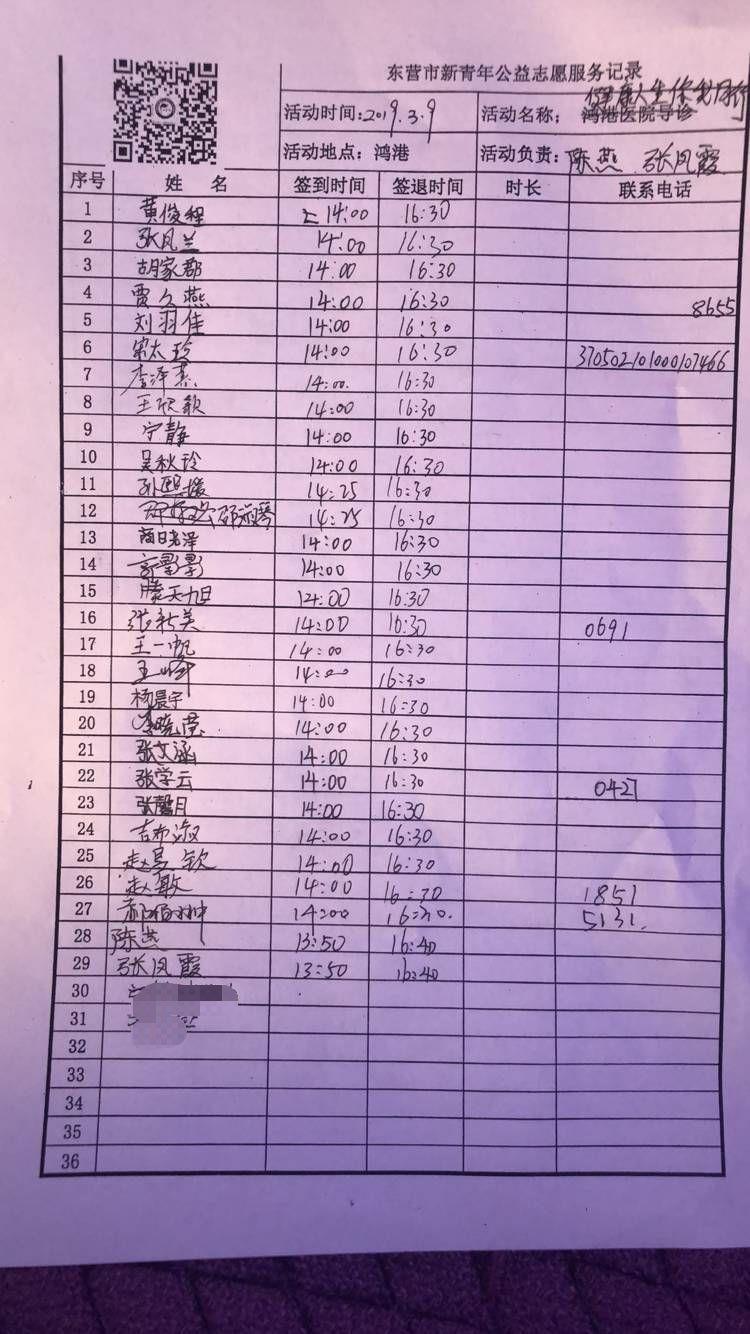 东营市新青年公益志愿服务记录
活动时间: 2019.3.9 活动名称: 鸿港医院导诊 健康人生你我同行
活动地点: 鸿港 活动负责: 陈燕 张凤霞
序号 姓名 签到时间 签退时间 时长 联系电话
1 黄俊程 14:00 16:30
2 张凤兰 14:00 16:30
3 胡家郡 14:00 16:30
4 贾久燕 14:00 16:30 8655
5 刘羽佳 14:00 16:30
6 宋太玲 14:00 16:30 370502101000107466
7 李泽熹 14:00. 16:30
8 王欣歌 14:00 16:30
9 宁静 14:00 16:30
10 吴秋玲 14:00 16:30
11 孙熙媛 14:25 16:30
12 邵淑琴 14:25 16:30
13 商日光泽 14:00 16:30
14 影影 14:00 16:30
15 滕天旭 14:00 16:30
16 张新美 14:00 16:30 0691
17 王一帆 14:00 16:30
18 王 14:00 16:30
19 杨晨宇 14:00 16:30
20 李晓莹 14:00 16:30
21 张文涵 14:00 16:30
22 张学云 14:00 16:30 0427
23 张馨月 14:00 16:30
24 吉布淑 14:00 16:30
25 赵昱钦 14:00 16:30
26 赵敏 14:00 16:30 1851
27 14:00 16:30. 5131.
28 陈燕 13:50 16:40
29 张凤霞 13:50 16:40
30
31
32
33
34
35
36